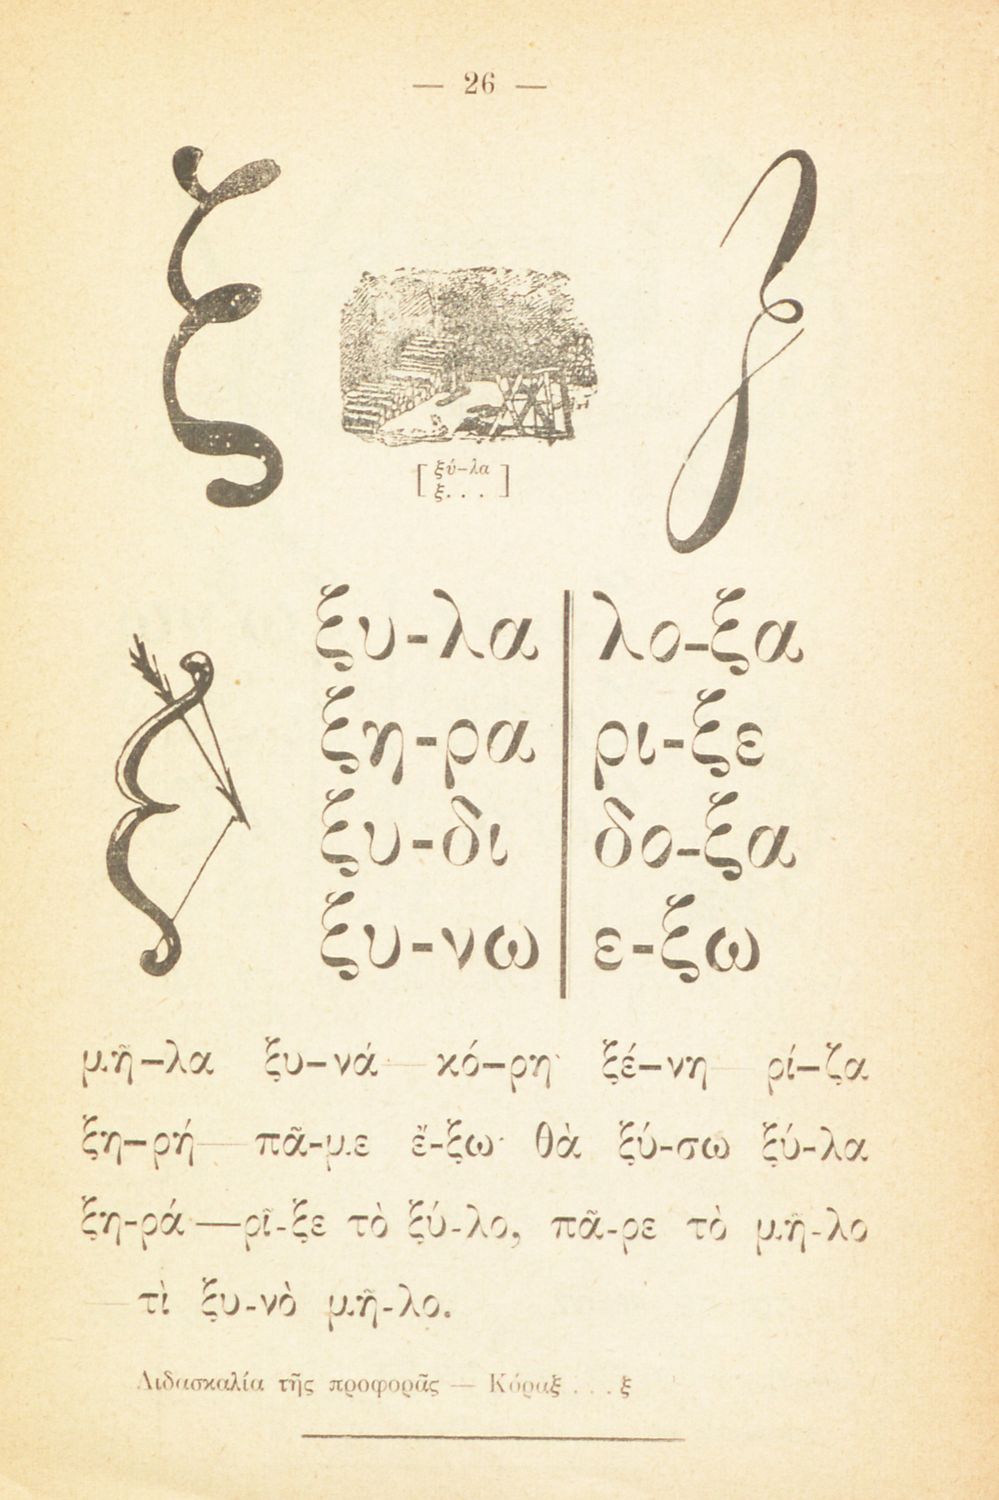 — 26 —
ξ ξ
[ ξύ-λα
ξ. . . ]
ξυ-λα | λο-ξα
ξη-ρα | ρι-ξε
ξυ-δι | δο-ξα
ξυ-νω | ε-ξω
μῆ-λα ξυ-νά — κό-ρη ξέ-νη — ρί-ζα
ξη-ρή — πᾶ-με ἔ-ξω· θὰ ξύ-σω ξύ-λα
ξη-ρά — ρῖ-ξε τὸ ξύ-λο, πᾶ-ρε τὸ μῆ-λο
— τὶ ξυ-νὸ μῆ-λο.
Διδασκαλία τῆς προφορᾶς — Κόραξ . . . ξ